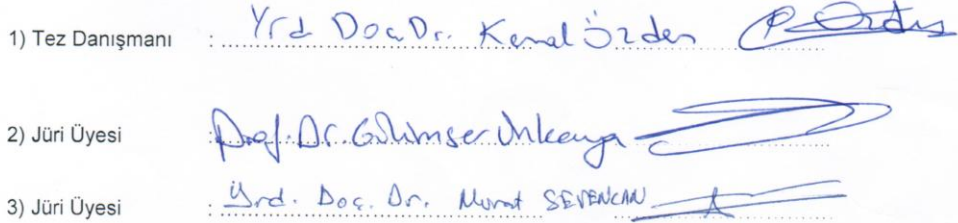 1) Tez Danışmanı : Yrd Doç.Dr. Kemal Özden
2) Jüri Üyesi : Prof. Dr. Gülümser Ünkaya
3) Jüri Üyesi : Yrd. Doç. Dr. Murat SEVENCAN